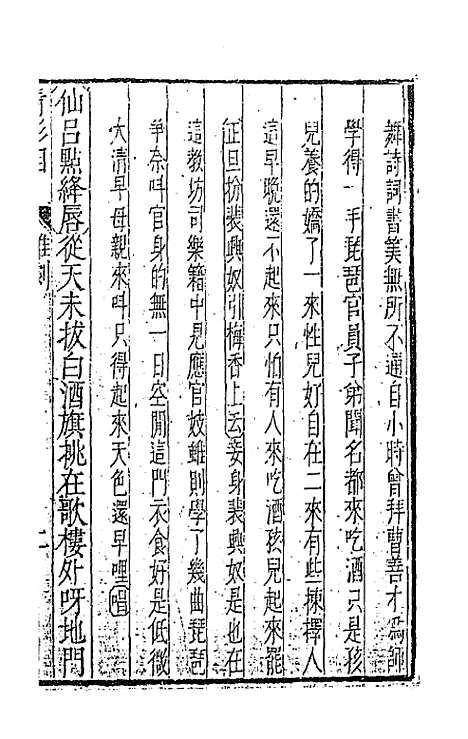 舞詩詞書筭無所不通自小時曾拜曹善才為師
學得一手琵琶官員子弟聞名都來吃酒只是孩
兒養的嬌了一來性兒好自在二來有些揀擇人
這早晚還不起來只怕有人來吃酒孩兒起來罷
正旦扮裴興奴引梅香上云妾身裴興奴是也在
這教坊司樂籍中見應官妓雖則學了幾曲琵琶
爭奈呌官身的無一日空閒這門衣食好是低微
大清早母親來呌只得起來天色還早哩唱
仙呂點絳唇從天未拔白酒旗挑在歌樓外呀地門
青衫淚 雜劇 二